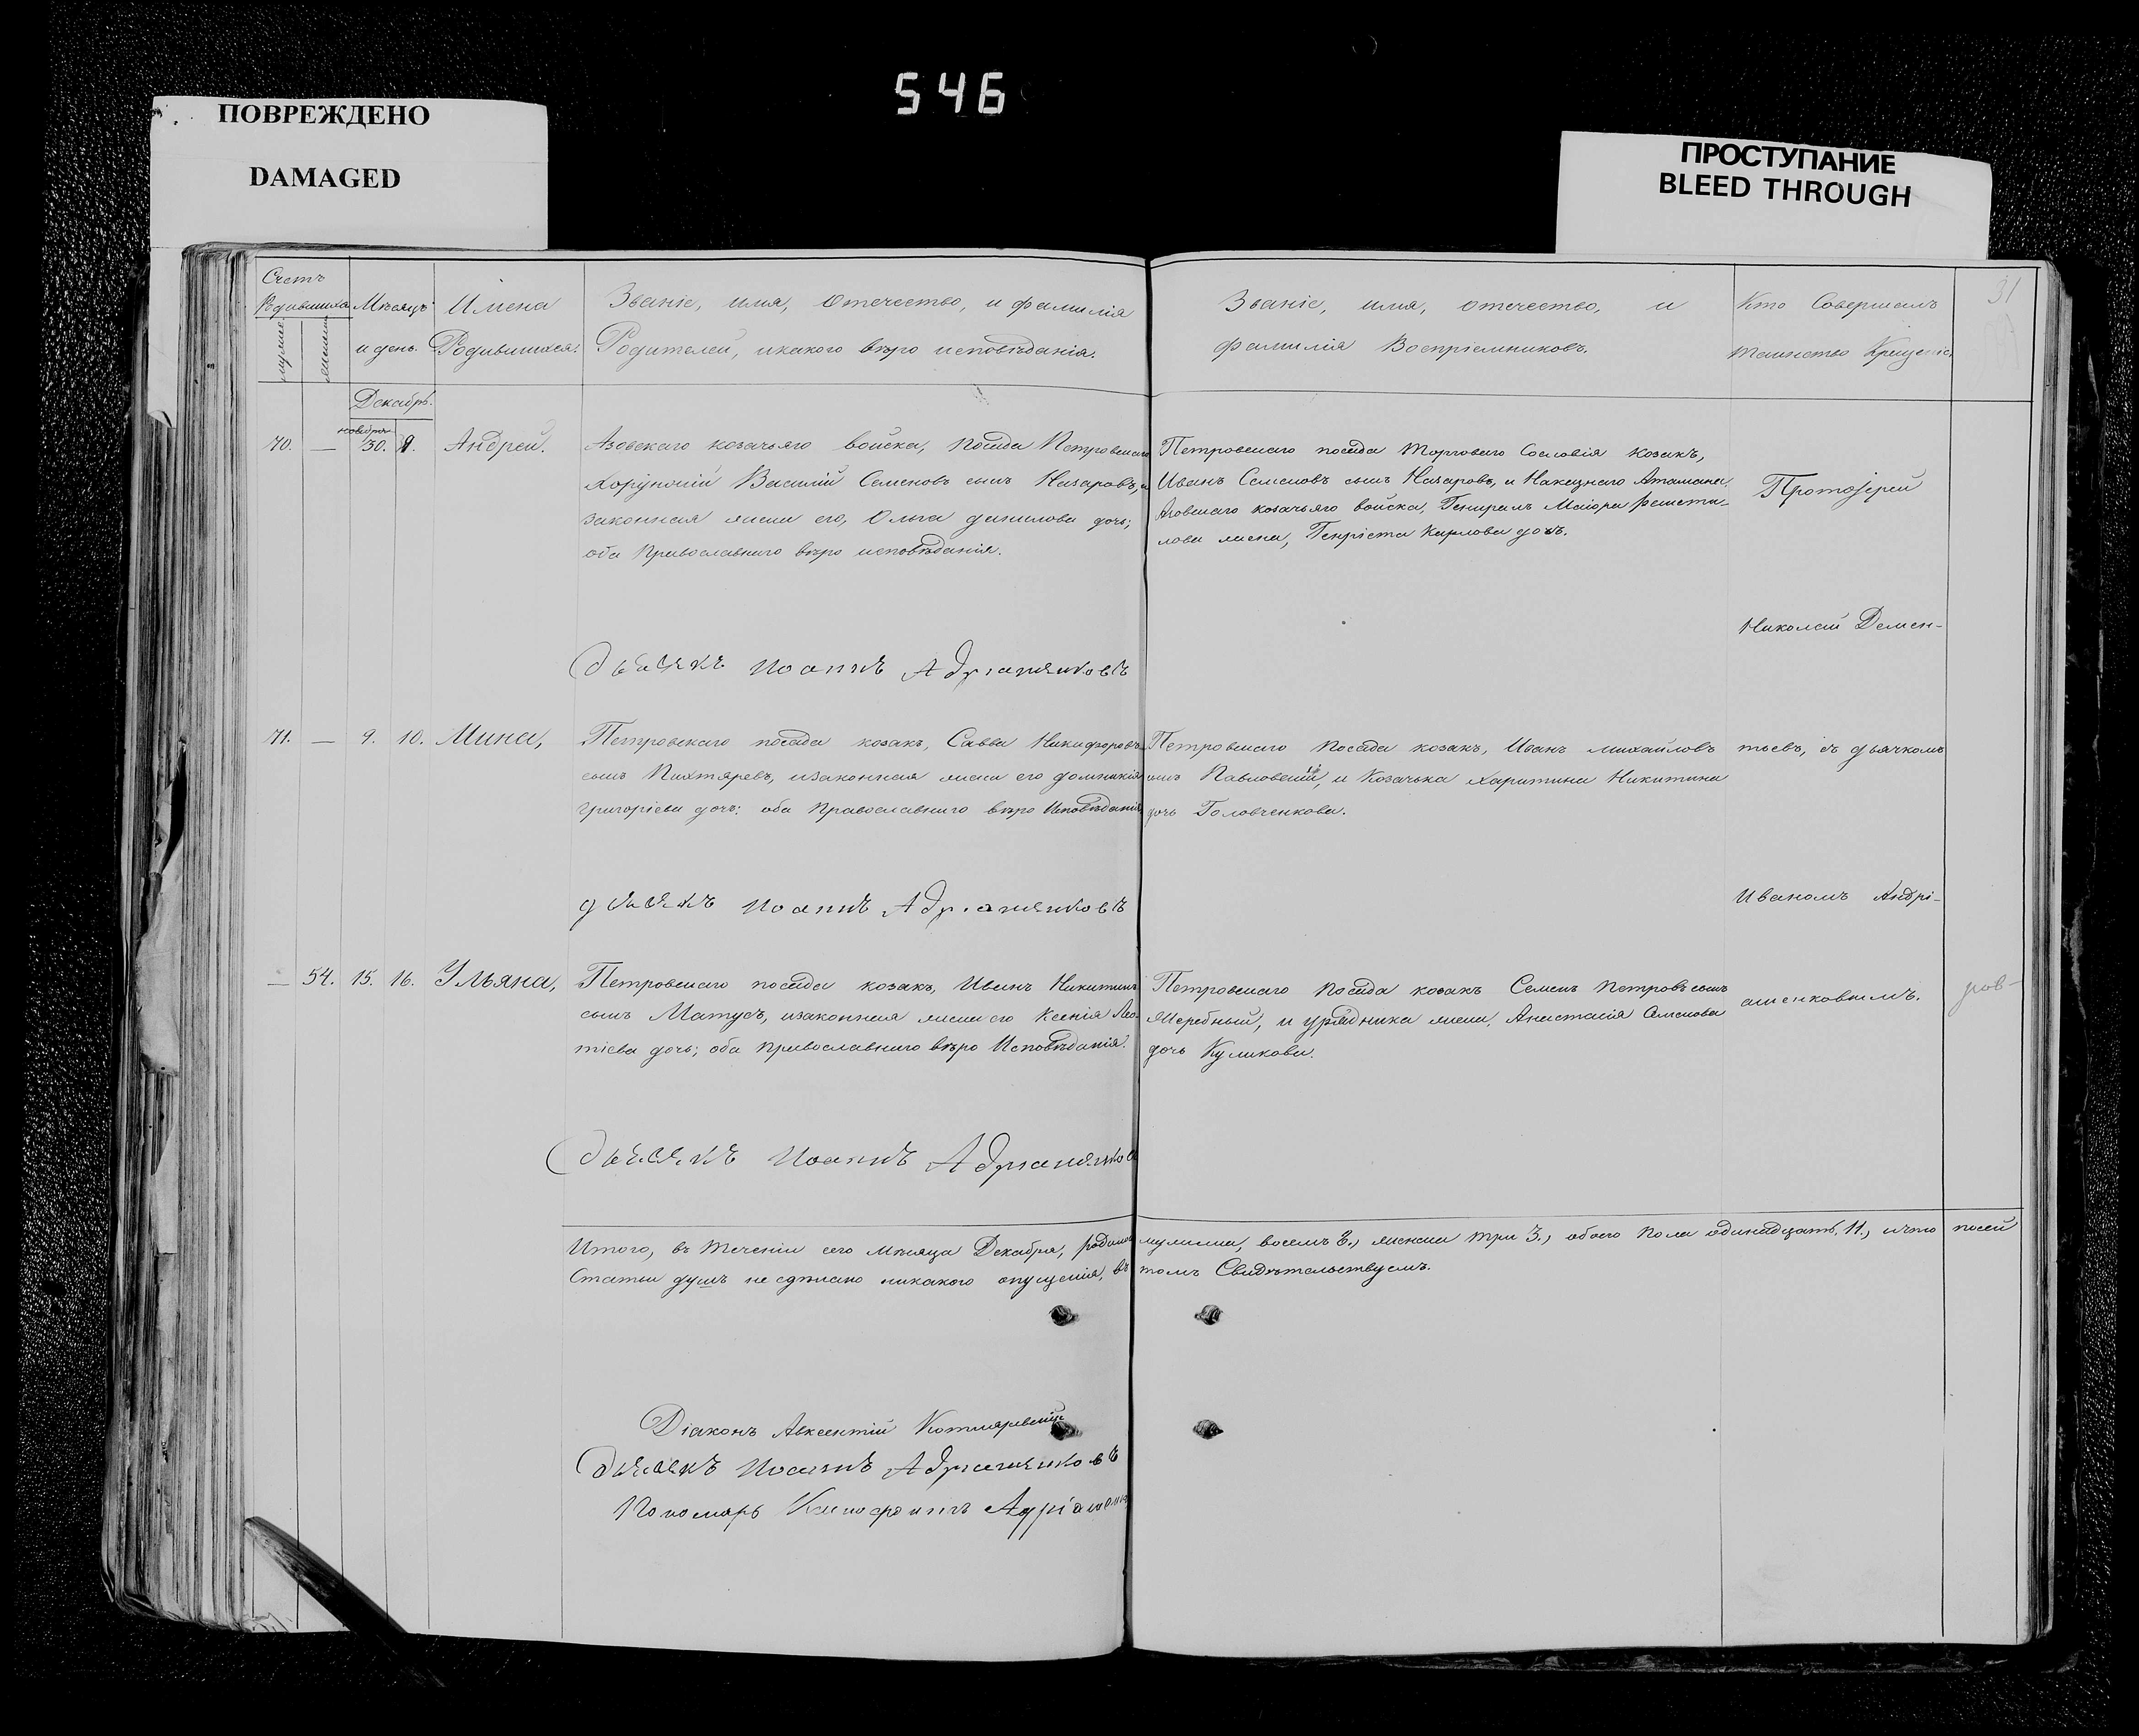 546
ПОВРЕЖДЕНО
DAMAGED
ПРОСТУПАНИЕ
BLEED THROUGH
31
Счетъ
Родившихся
мужеска
женска
Мѣсяцъ
и день.
Имена
Родившихся.
Званіе, имя, отечество, и фамилія
Родителей, и какого вѣро исповѣданія.
Званіе, имя, отечество, и
фамилія Воспріемниковъ.
Кто Совершалъ
таинство Крещенія
Декабрь.
ноября
70. — 30. 9. Андрей.
Азовскаго козачьяго войска, посада Петровскаго
Хорунжій Василій Семеновъ сынъ Назаровъ, и
законная жена его, Ольга данилова дочь;
оба Православнаго вѣро исповѣданія.
Петровскаго посада торговаго Сословія козакъ,
Иванъ Семеновъ сынъ Назаровъ, и Наказнаго Атамана
Азовскаго козачьяго войска, Генералъ Маіора
лова жена, Генріета Карлова дочь.
Протоіерей
Николай Демен-
Дьячекъ Иоаннъ Адріаненковъ
71. — 9. 10. Мина,
Петровскаго посада козакъ, Савва Никифоровъ
сынъ Пихтяревъ, и законная жена его домникія
григоріева дочь: оба Православнаго вѣро Исповѣданія
Петровскаго Посада козакъ, Иванъ михайловъ
сынъ Павловскій, и Козачька харитина Никитина
дочь Головченкова.
тьевъ, съ дьячкомъ
Иваномъ Андрі-
дьячекъ Иоаннъ Адріаненковъ
— 54. 15. 16. Ульяна,
Петровскаго посада козакъ, Иванъ Никитинъ
сынъ Матусъ, и законная жена его Ксенія Лео-
тіева дочь; оба православнаго вѣро Исповѣданія.
Петровскаго Посада козакъ Семенъ Петровъ сынъ
Жеребный, и урядника жена, Анастасія Семенова
дочь Куликова.
ашенковымъ.
ров-
Дьячекъ Иоаннъ Адріаненков
Итого, въ теченіи сего мѣсяца Декабря, родилось мужеска, восемь 8., женска три 3., обоего пола одинадцать, 11., и что посей
Статьи душъ не сдѣлано никакого опущенія, въ томъ Свидѣтельствуемъ.
Діаконъ Авксентій Котляревскій
Дьячекъ Иоаннъ Адріаненковъ
Пономарь Ксенофонтъ